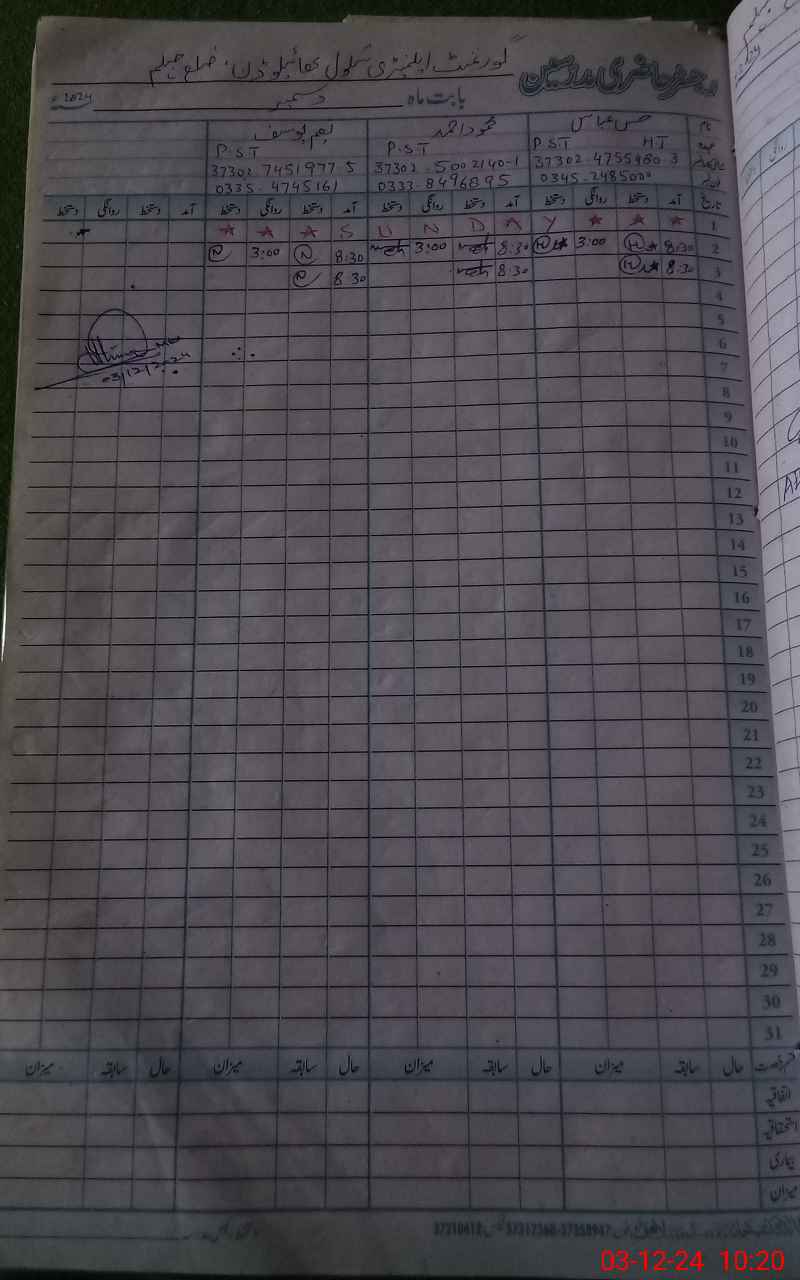 رجسٹر حاضری مدرسین گورنمنٹ ایلیمنٹری سکول ضلع جہلم
بابت ماہ دسمبر 2024ء
نام حسن عباس محمود احمد نعیم یوسف
عہدہ P.S.T HT P.S.T P.S.T
37302-4755480-3 37302-5002140-1 37302-7451977-5
0345-2485000 0333-8496895 0335-4745161
تاریخ آمد دستخط روانگی دستخط آمد دستخط روانگی دستخط آمد دستخط روانگی دستخط آمد دستخط روانگی دستخط
1 S U N D A Y
2 8:30 3:00 8:30 3:00 8:30 3:00
3 8:30 8:30 8 30
4
5
6
7
03/12/2024
8
9
10
11
12
13
14
15
16
17
18
19
20
21
22
23
24
25
26
27
28
29
30
31
قسم رخصت حال سابقہ میزان حال سابقہ میزان حال سابقہ میزان حال سابقہ میزان
اتفاقیہ
استحقاقیہ
بیماری
میزان
03-12-24 10:20